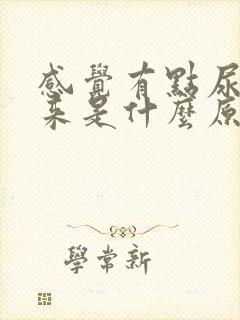 感覺有點尿
来是什麼原
學常新